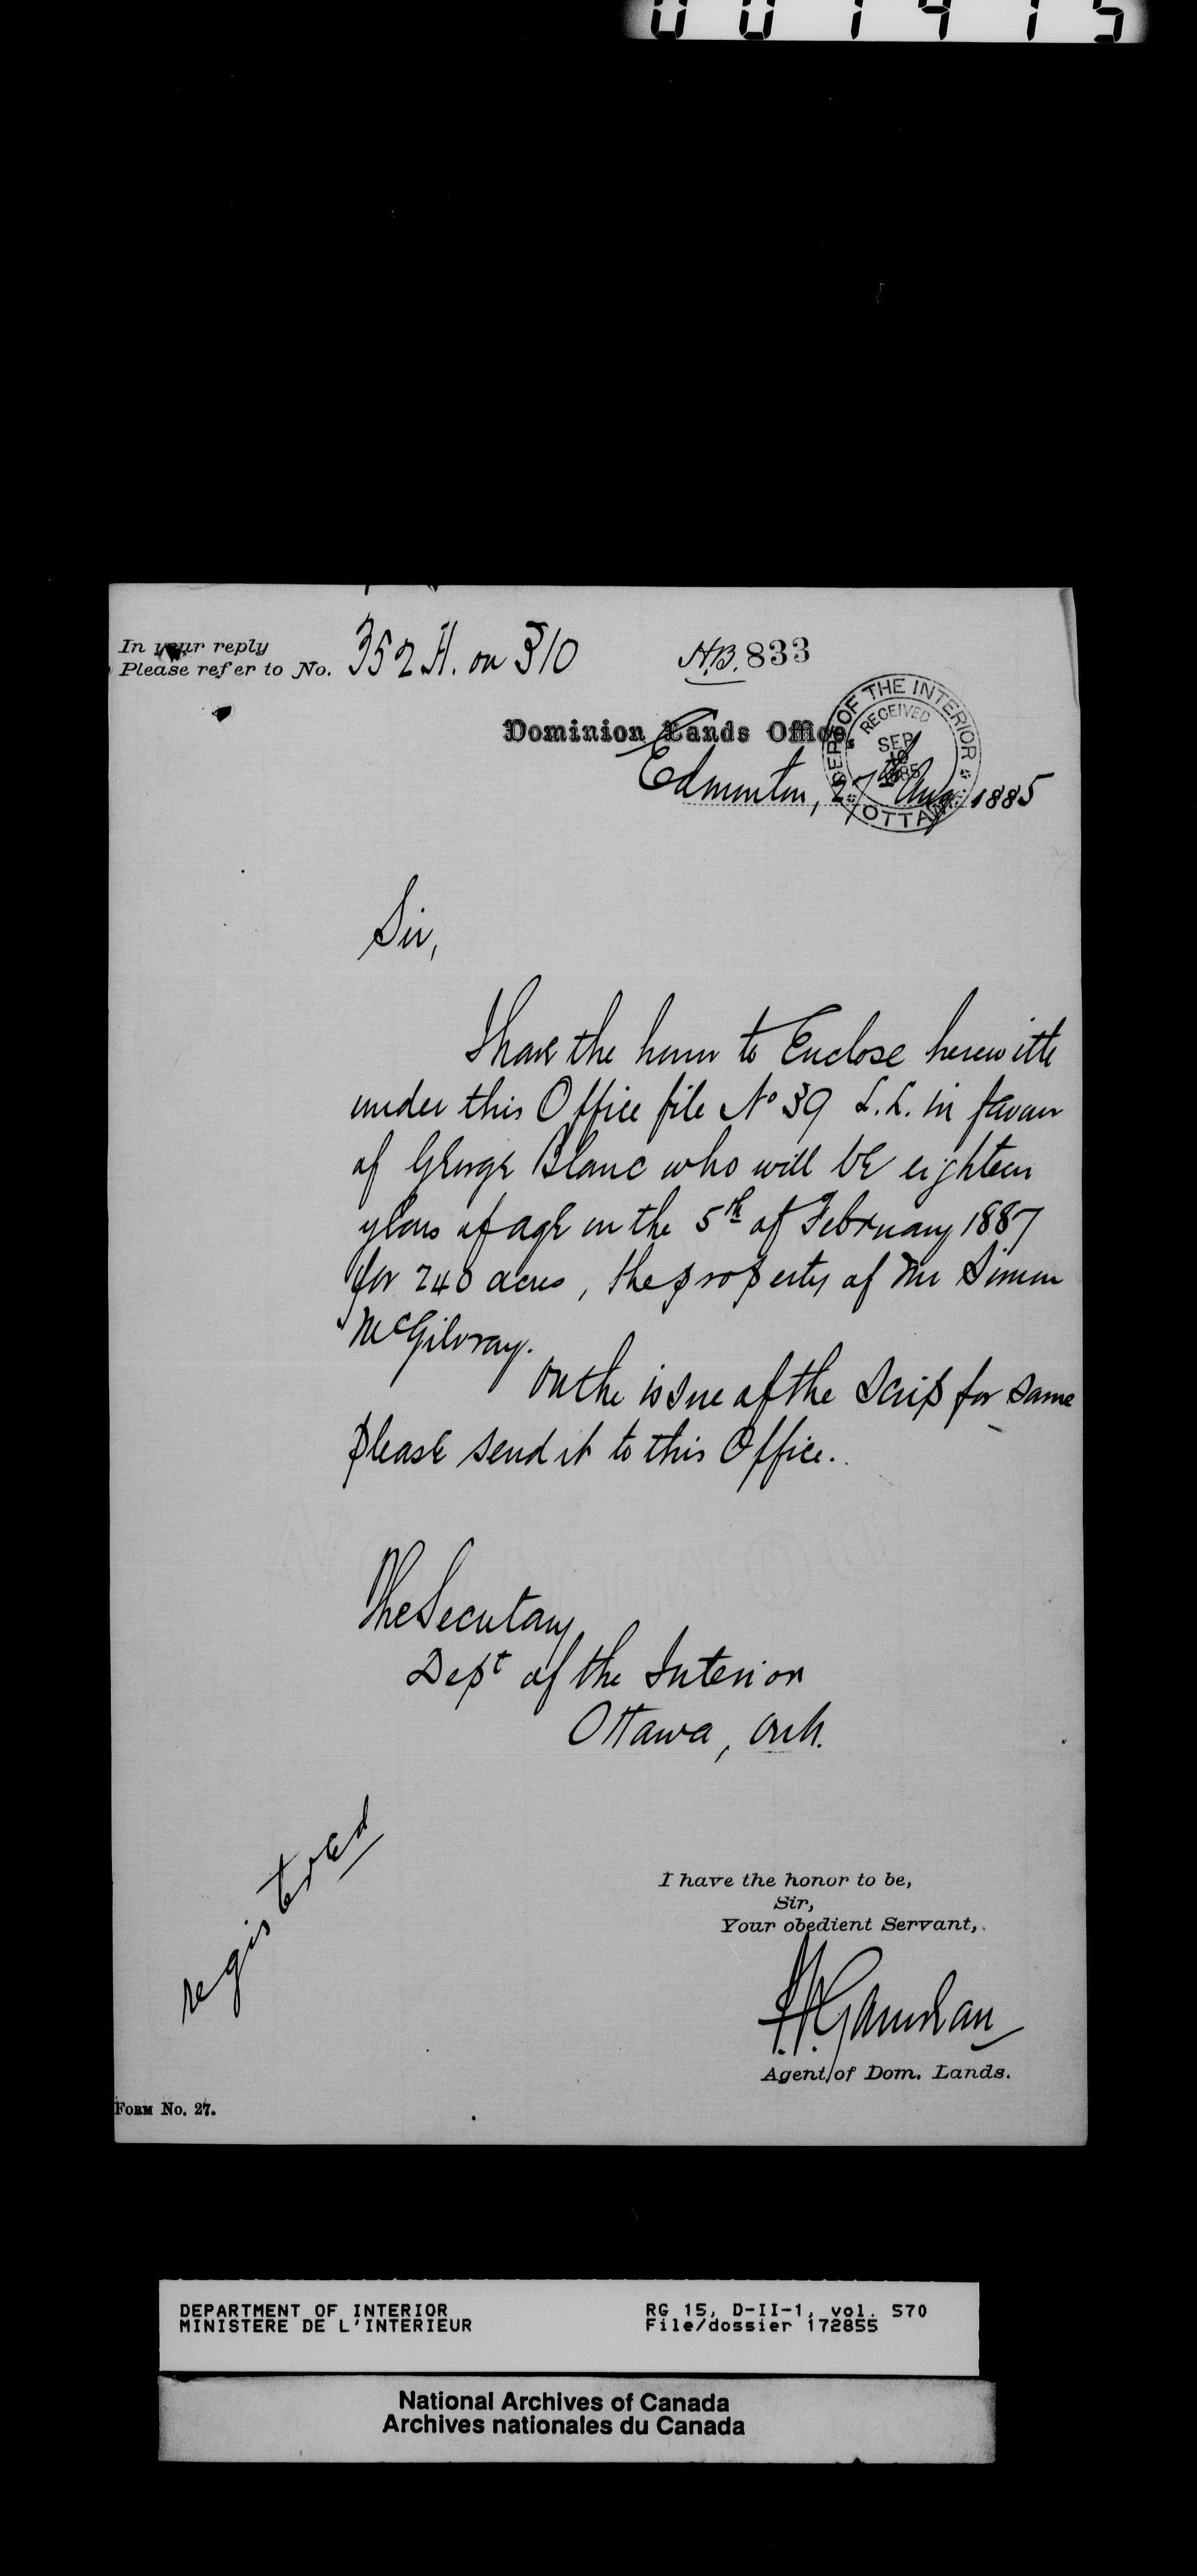 001415
In your reply
Please refer to No. 352 H. on 310
H.B. 833
Dominion Lands Office,
DEPT OF THE INTERIOR
RECEIVED
SEP
10
1885
OTTAWA
Edmonton, 27th Aug. 1885
Sir,
I have the honor to Enclose herewith
under this Office file No 39 L.L. in favour
of George Blanc who will be eighteen
years of age on the 5th of February 1887
for 240 acres, the property of Mr Simon
McGilvray.
On the issue of the Scrip for same
please send it to this Office.
The Secretary
Dept of the Interior
Ottawa, Ont.
registered
I have the honor to be,
Sir,
Your obedient Servant,
Agent of Dom. Lands.
FORM No. 27.
DEPARTMENT OF INTERIOR
MINISTERE DE L'INTERIEUR
RG 15, D-II-1, vol. 570
File/dossier 172855
National Archives of Canada
Archives nationales du Canada